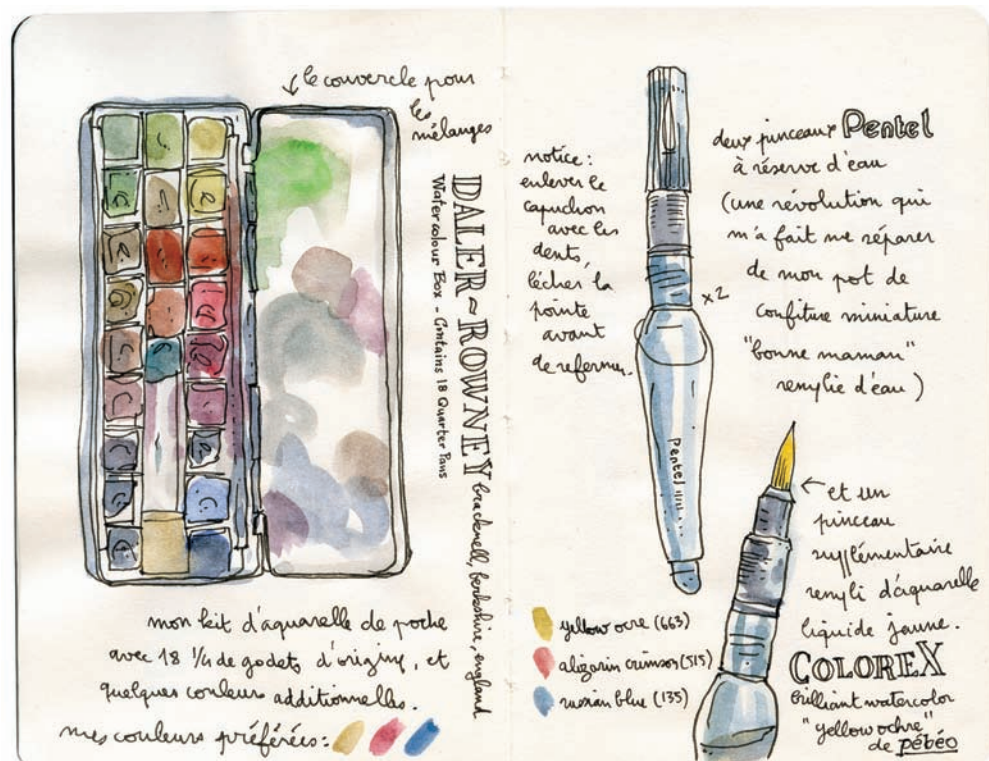 le couvercle pour
les
mélanges
DALER~ROWNEY bracknell, berkshire, england
Watercolour Box - Contains 18 Quarter Pans
mon kit d'aquarelle de poche
avec 18 1/4 de godets d'origine, et
quelques couleurs additionnelles.
mes couleurs préférées:
notice:
enlever le
capuchon
avec les
dents,
lécher la
pointe
avant
de refermer.
x2
Pentel
deux pinceaux Pentel
à réserve d'eau
(une révolution qui
m'a fait me séparer
de mon pot de
confiture miniature
"bonne maman"
remplie d'eau)
et un
pinceau
supplémentaire
rempli d'aquarelle
liquide jaune.
COLOREX
brilliant watercolor
"yellow ochre"
de pébéo
yellow ocre (663)
alizarin crimson (515)
russian blue (135)